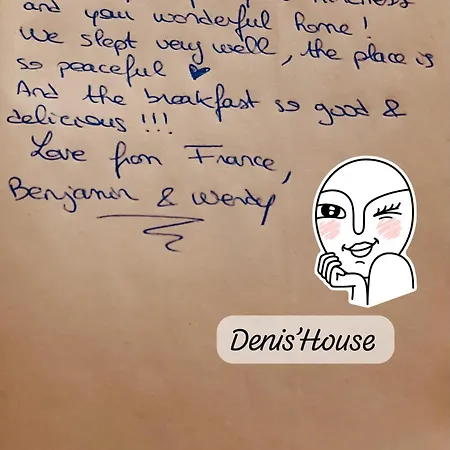 and you wonderful home!
We slept very well, the place is
so peaceful ♥
And the breakfast so good &
delicious !!!
Love from France,
Benjamin & Wendy
Denis'House